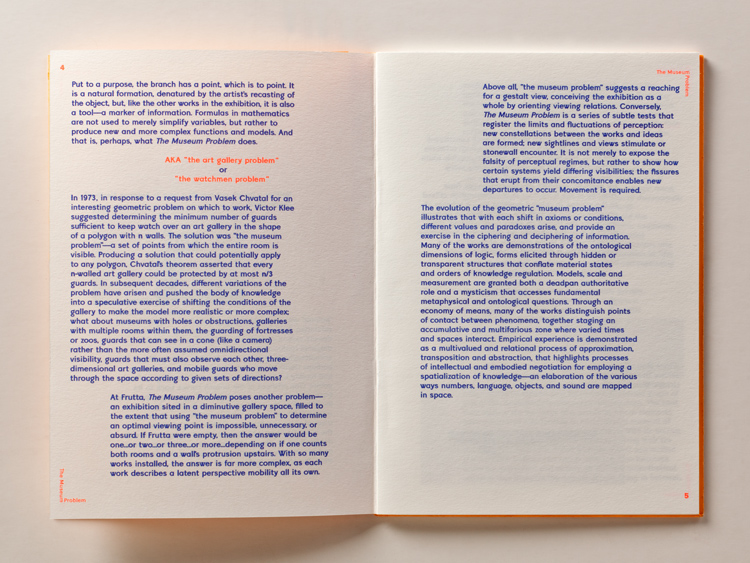 4
Put to a purpose, the branch has a point, which is to point. It
is a natural formation, denatured by the artist's recasting of
the object, but, like the other works in the exhibition, it is also
a tool—a marker of information. Formulas in mathematics
are not used to merely simplify variables, but rather to
produce new and more complex functions and models. And
that is, perhaps, what The Museum Problem does.
AKA "the art gallery problem"
or
"the watchmen problem"
In 1973, in response to a request from Vasek Chvatal for an
interesting geometric problem on which to work, Victor Klee
suggested determining the minimum number of guards
sufficient to keep watch over an art gallery in the shape
of a polygon with n walls. The solution was "the museum
problem"—a set of points from which the entire room is
visible. Producing a solution that could potentially apply
to any polygon, Chvatal's theorem asserted that every
n-walled art gallery could be protected by at most n/3
guards. In subsequent decades, different variations of the
problem have arisen and pushed the body of knowledge
into a speculative exercise of shifting the conditions of the
gallery to make the model more realistic or more complex;
what about museums with holes or obstructions, galleries
with multiple rooms within them, the guarding of fortresses
or zoos, guards that can see in a cone (like a camera)
rather than the more often assumed omnidirectional
visibility, guards that must also observe each other, three-
dimensional art galleries, and mobile guards who move
through the space according to given sets of directions?
At Frutta, The Museum Problem poses another problem—
an exhibition sited in a diminutive gallery space, filled to
the extent that using "the museum problem" to determine
an optimal viewing point is impossible, unnecessary, or
absurd. If Frutta were empty, then the answer would be
one...or two...or three...or more...depending on if one counts
both rooms and a wall's protrusion upstairs. With so many
works installed, the answer is far more complex, as each
work describes a latent perspective mobility all its own.
The Museum
Problem
The Museum
Problem
Above all, "the museum problem" suggests a reaching
for a gestalt view, conceiving the exhibition as a
whole by orienting viewing relations. Conversely,
The Museum Problem is a series of subtle tests that
register the limits and fluctuations of perception:
new constellations between the works and ideas
are formed; new sightlines and views stimulate or
stonewall encounter. It is not merely to expose the
falsity of perceptual regimes, but rather to show how
certain systems yield differing visibilities; the fissures
that erupt from their concomitance enables new
departures to occur. Movement is required.
The evolution of the geometric "museum problem"
illustrates that with each shift in axioms or conditions,
different values and paradoxes arise, and provide an
exercise in the ciphering and deciphering of information.
Many of the works are demonstrations of the ontological
dimensions of logic, forms elicited through hidden or
transparent structures that conflate material states
and orders of knowledge regulation. Models, scale and
measurement are granted both a deadpan authoritative
role and a mysticism that accesses fundamental
metaphysical and ontological questions. Through an
economy of means, many of the works distinguish points
of contact between phenomena, together staging an
accumulative and multifarious zone where varied times
and spaces interact. Empirical experience is demonstrated
as a multivalued and relational process of approximation,
transposition and abstraction, that highlights processes
of intellectual and embodied negotiation for employing a
spatialization of knowledge—an elaboration of the various
ways numbers, language, objects, and sound are mapped
in space.
5